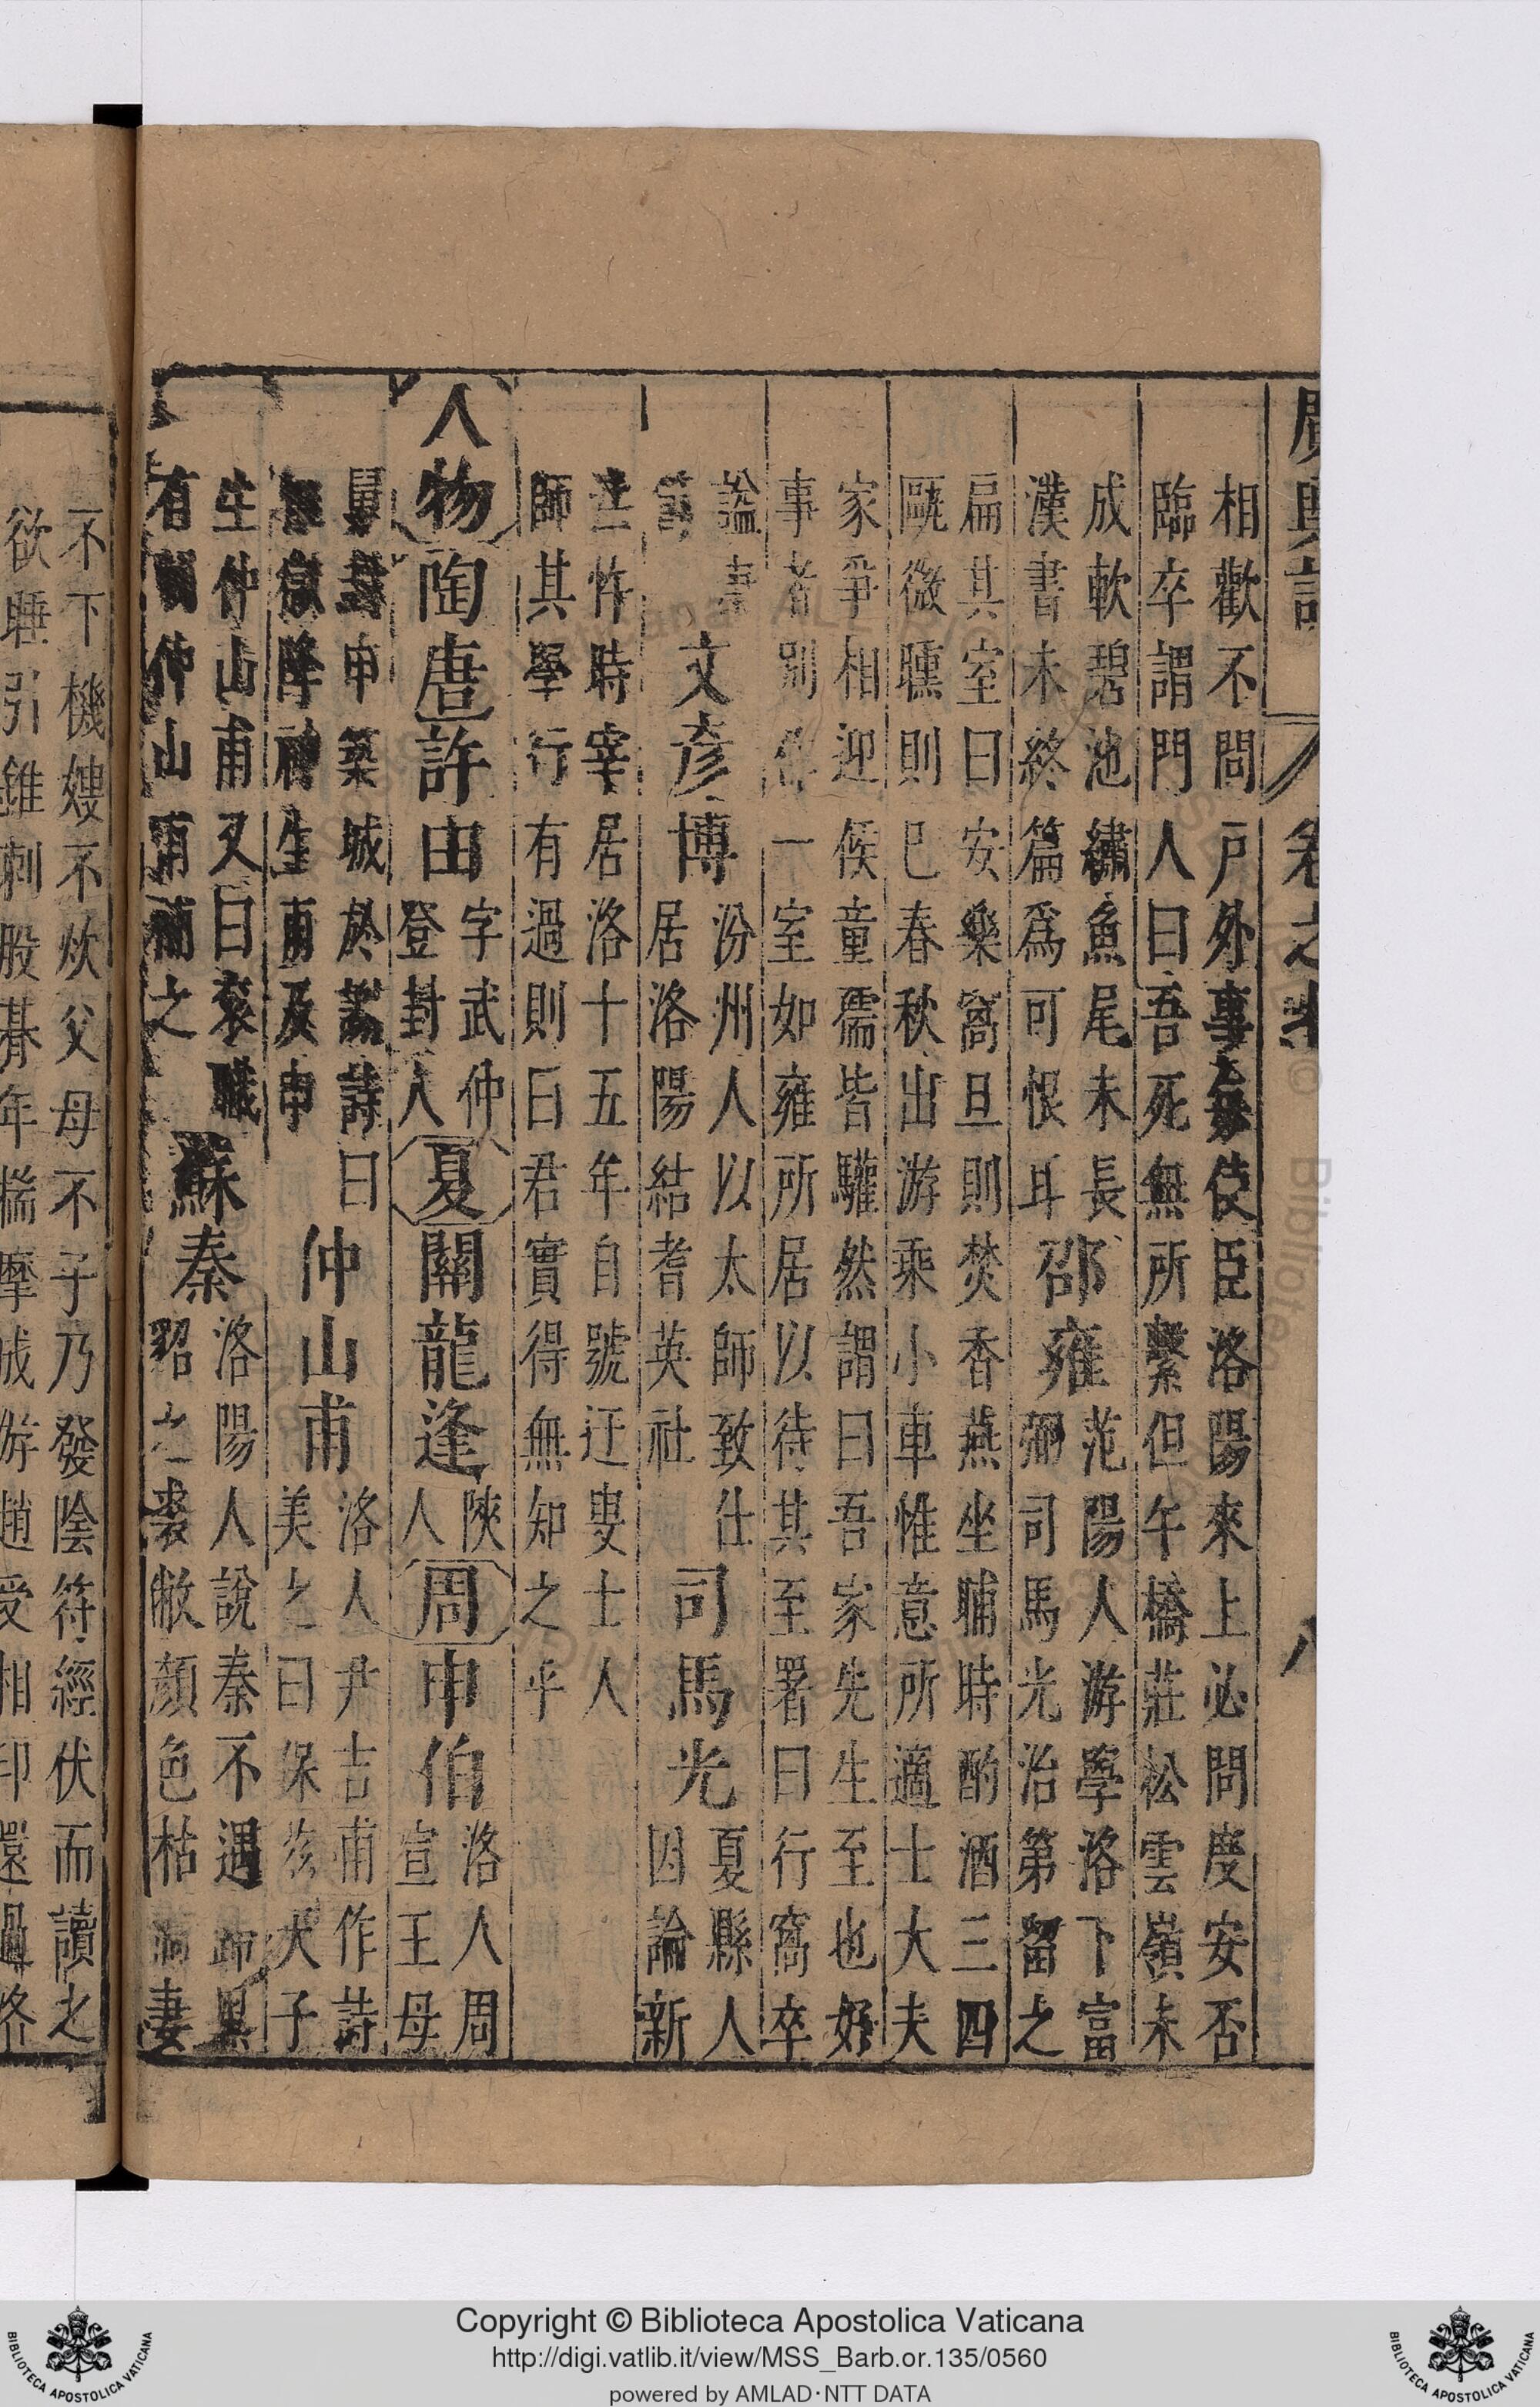 廣輿記 卷之 八
相歡不問戶外事每使臣洛陽來上必問度安否
臨卒謂門人曰吾死無所繫但午橋莊松雲嶺未
成軟碧池繡魚尾未長
漢書未終篇爲可恨耳
邵雍
范陽人游學洛下富
弼司馬光治第留之
扁其室曰安樂窩旦則焚香燕坐晡時酌酒三四
甌微醺則已春秋出游乘小車惟意所適士大夫
家爭相迎候童孺皆驩然謂曰吾家先生至也好
事者別作一室如雍所居以待其至署曰行窩卒
謚
康節
文彥博
汾州人以太師致仕
居洛陽結耆英社
司馬光
夏縣人
因論新
法忤時宰居洛十五年自號迂叟士人
師其學行有過則曰君實得無知之乎
人物
陶唐
許由
字武仲
登封人
夏
關龍逢
陝
人
周
申伯
洛人周
宣王母
舅封申築城於謝詩曰
維嶽降神生甫及申
仲山甫
洛人尹吉甫作詩
美之曰保茲天子
生仲山甫又曰袞職
有闕仲山甫補之
蘇秦
洛陽人說秦不遇歸黑
貂之裘敝顏色枯 妻
不下機嫂不炊父母不子乃發陰符經伏而讀之
欲睡引錐刺股朞年揣摩成游趙受相印還過洛
Copyright © Biblioteca Apostolica Vaticana
http://digi.vatlib.it/view/MSS_Barb.or.135/0560
powered by AMLAD·NTT DATA
BIBLIOTECA APOSTOLICA VATICANA
BIBLIOTECA APOSTOLICA VATICANA